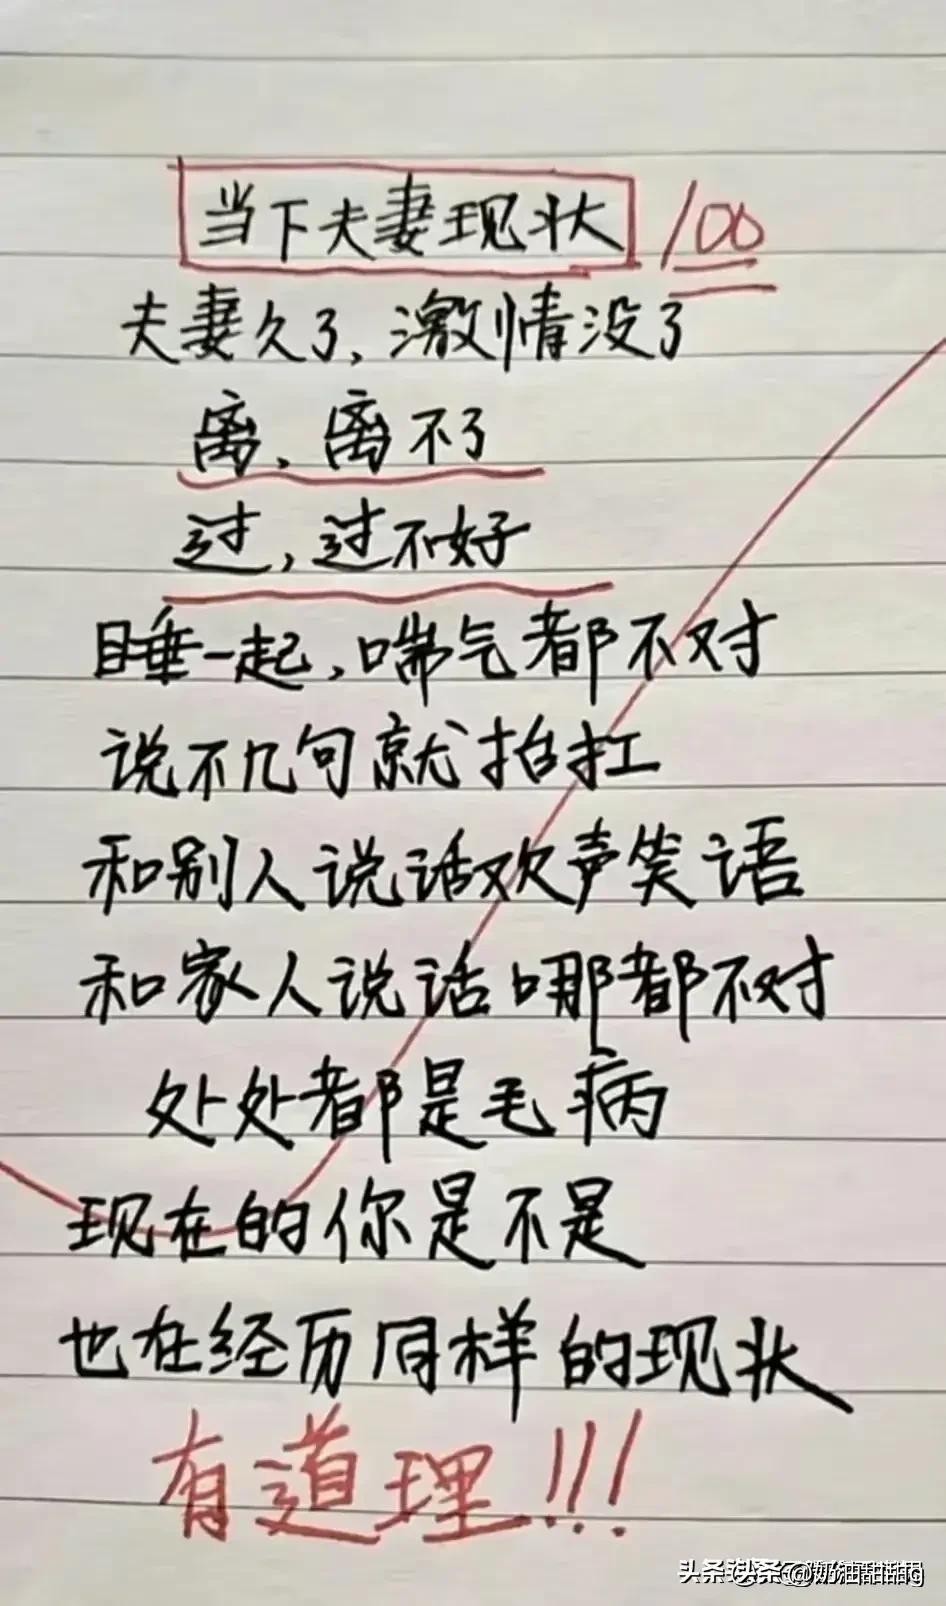 当下夫妻现状 100
夫妻久了,激情没了
离,离不了
过,过不好
睡一起,喘气都不对
说不几句就抬扛
和别人说话欢声笑语
和家人说话哪都不对
处处都是毛病
现在的你是不是
也在经历同样的现状
有道理!!!
头条